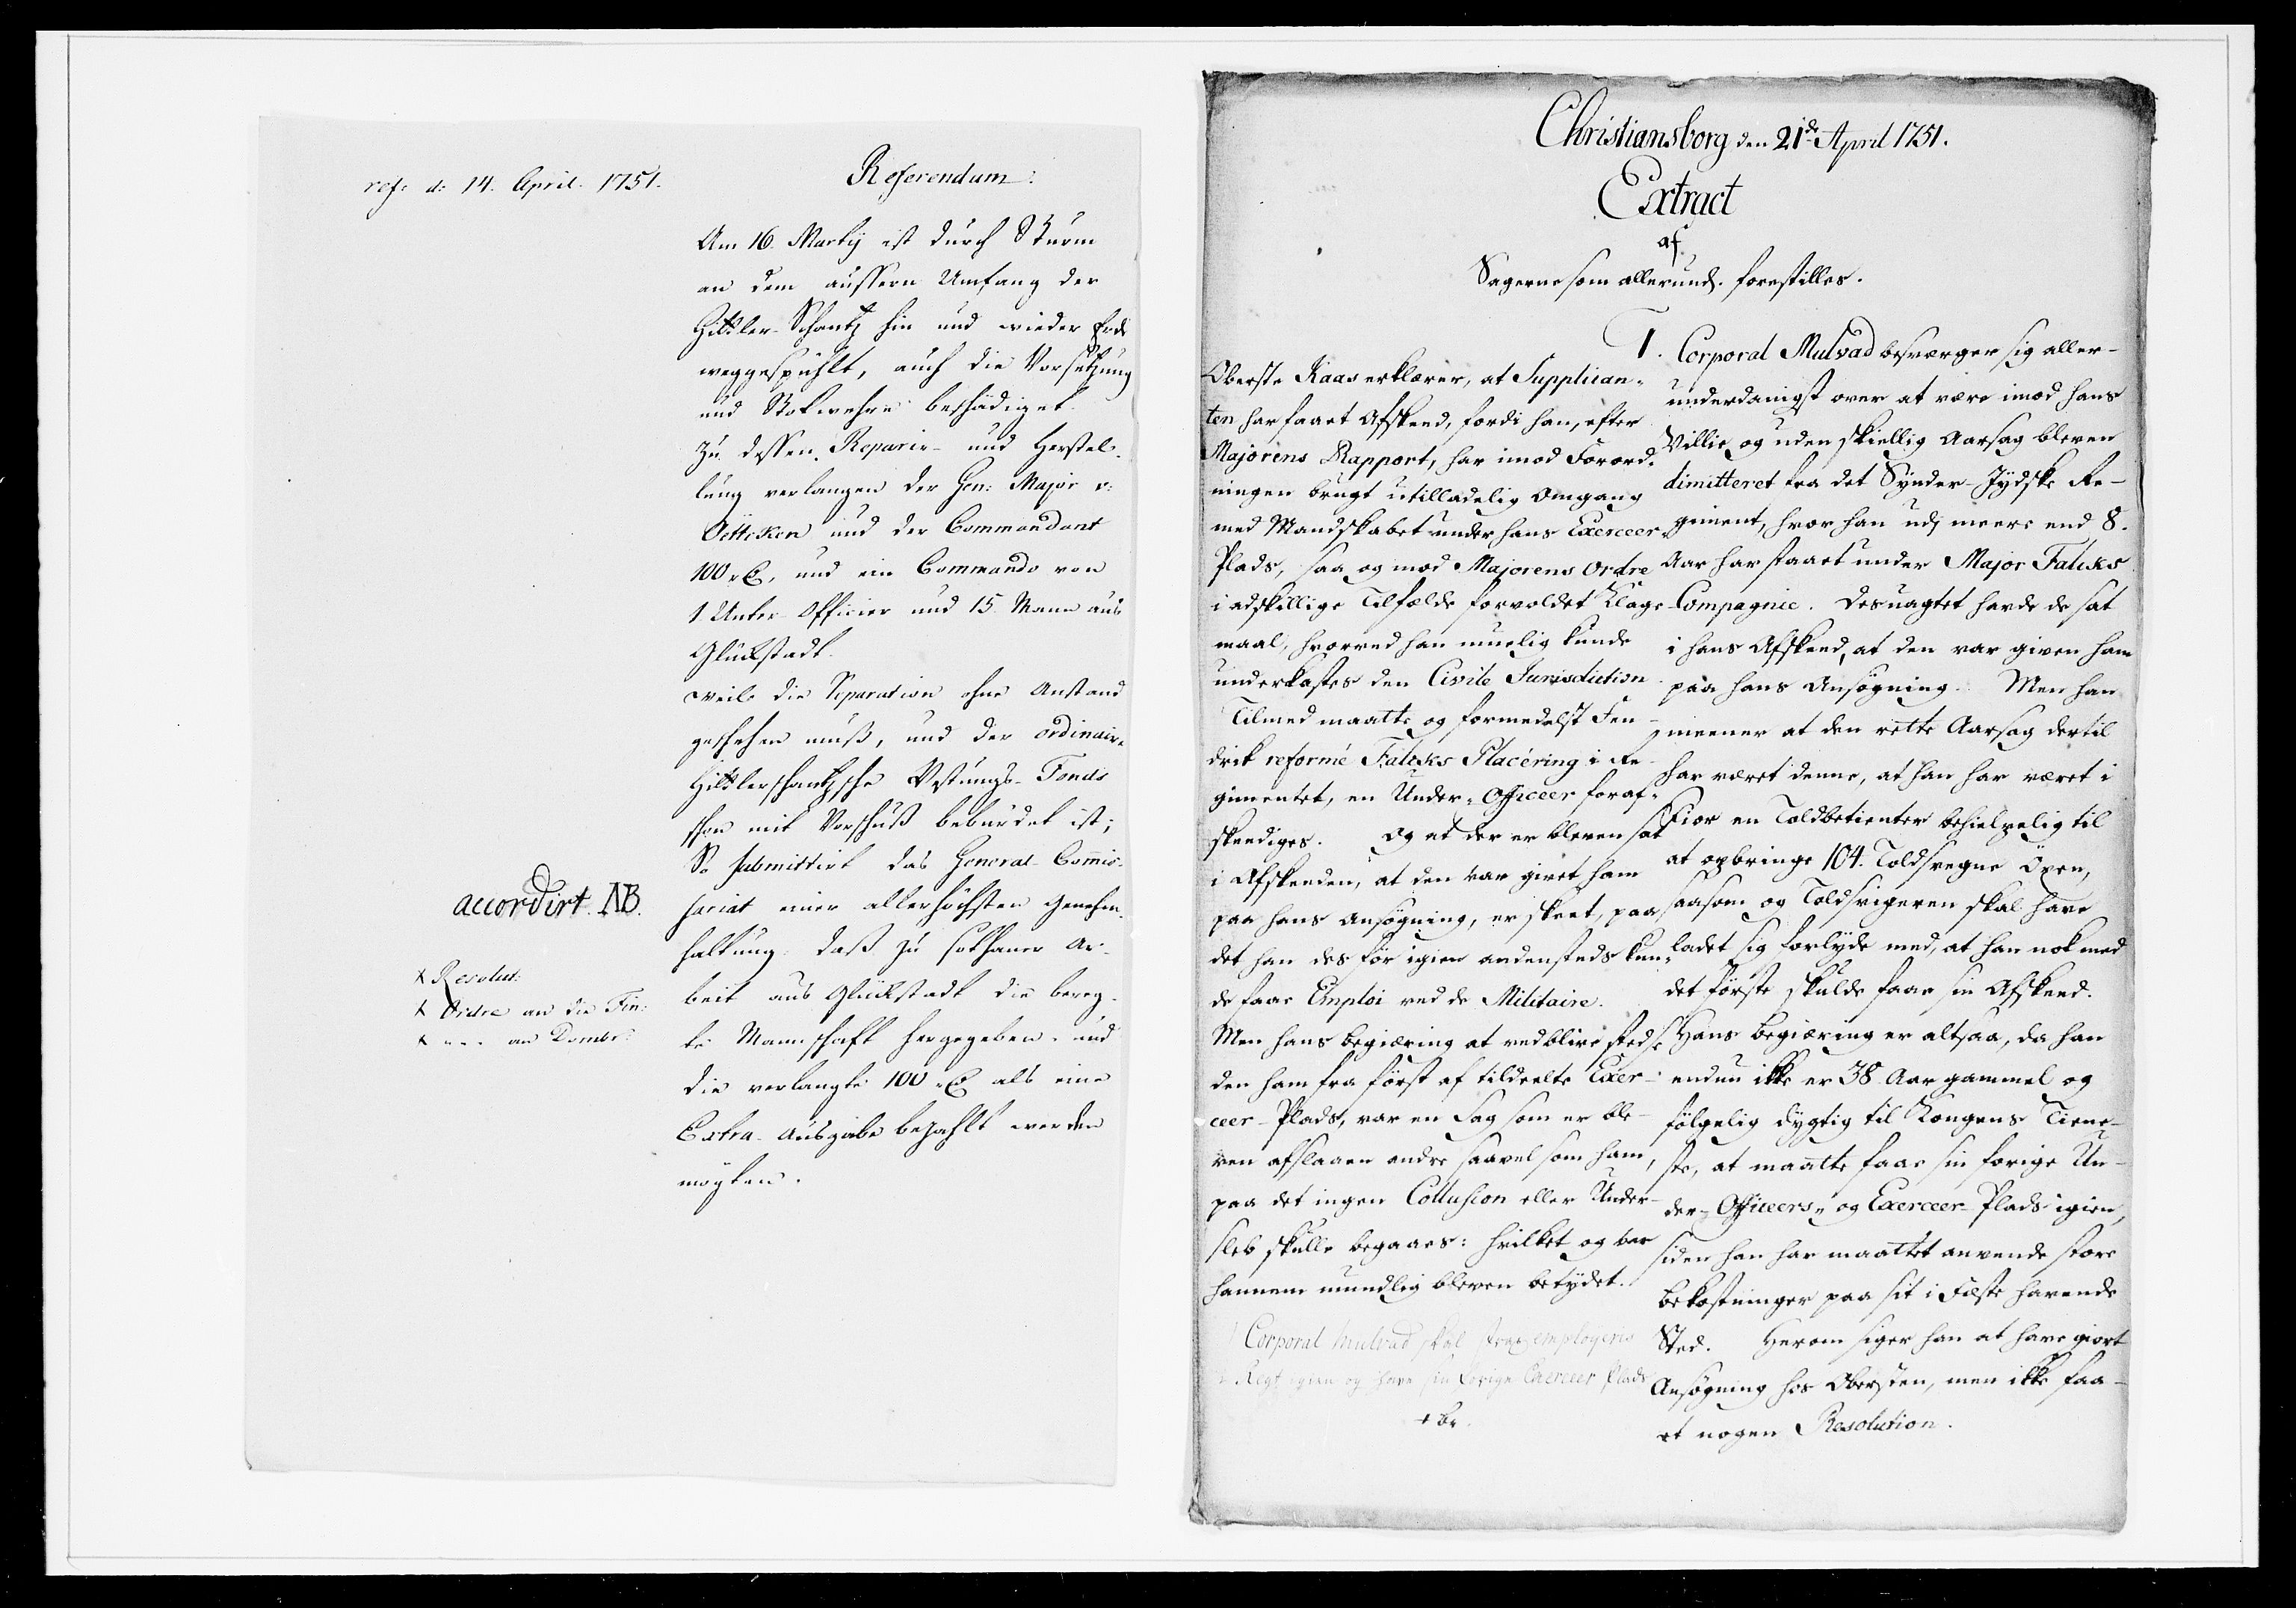 ref: d: 14. April. 1751.
Referendum:
Am 16. Martij ist durch Sturm
an dem äussern Umfang der
Hittler-Schantz hin und wieder Erde
weggespühlt, auch die Vorsetzung
und Stokwehre beschädiget.
Zu dessen Reparir- und Herstel-
lung verlangen der Gen: Major v:
Öetteken und der Commandant
100 rC, und ein Commando von
1. Unter-Officier und 15. Mann aus
Glückstadt.
weile die Reparation ohne Anstand
geschehen muß, und der ordinaire
Hittlerschantzsche Vestungs-Fonds
schon mit Vorschuß bebürdet ist;
So submittirt das General-Commis-
sariat einer allerhöchsten Genehm-
haltung: daß zu sothaner Ar-
beit aus Glückstadt die bereg-
te Mannschaft hergegeben, und
die verlangte 100 rC als eine
Extra-Ausgabe bezahlt werden
mögten.
accordirt. NB.
x Resolut:
x Ordre an die Fin:
x - - - an Dombr:
Christiansborg den 21de April 1751.
Extract
af
Sagerne som allerund. forestilles.
1.
Corporal Mulvad besværger sig aller-
underdanigst over at være imod hans
Villie og uden skiellig Aarsag bleven
dimitteret fra det Synder-Jydske Re-
giment, hvor han udj meere end 8.
Aar har staaet under Major Faliks
Compagnie. Desuagtet havde de sat
i hans Afskeed, at den var given ham
paa hans Ansøgning. Men han
meener at den rette Aarsag dertil
har været denne, at han har været i
Fior en Toldbetienter behielpelig til
at opbringe 104. Toldsvegne Öxen,
saasom og Toldsvigeren skal have
ladet sig forlyde med, at han nok med
det første skulde faae sin Afskeed.
Hans begiæring er altsaa, da han
enduu ikke er 38 Aar gammel og
følgelig dygtig til Kongens Tiene-
ste, at maatte faae sin forige Un-
der-Officeers- og Exerceer-Plads igien,
siden han har maattet anvende store
bekostninger paa sit i Fæste havende
Sted. Herom siger han at have giort
Ansøgning hos Obersten, men ikke faa-
et nogen Resolution.
Oberste Kaas erklærer, at Supplican-
ten har faaet Afskeed, fordi han, efter
Majorens Rapport, har imod Forord-
ningen brugt utilladelig Omgang
med Mandskabet under hans Exerceer-
Plads, saa og mod Majorens Ordre
i adskillige Tilfælde forvoldet Klage-
maal, hvorved han muelig kunde
underkastes den Civile Jurisdiction.
Tilmed maatte og formedelst Fen-
drik reformé Faliks Placéring i Re-
gimentet, en Under-Officeer foraf-
skeediges. Og at der er bleven sat
i Afskeeden, at den var givet ham
paa hans Ansøgning, er skeet, paa
det han des før igien andensteds kun-
de faae Emploi ved de Militaire.
Men hans begiæring at vedblive stedse
den ham fra først af tildeelte Exer-
ceer-Plads, var en Sag som er ble-
ven afslaaen andre saavel som ham,
paa det ingen Collusion eller Under-
sleb skulle begaaes: hvilket og var
hannem mundlig bleven betydet.
Corporal Mulvad skal strax employeris
v. Regt igien og have sin forige Exerceer Plads
+ br.